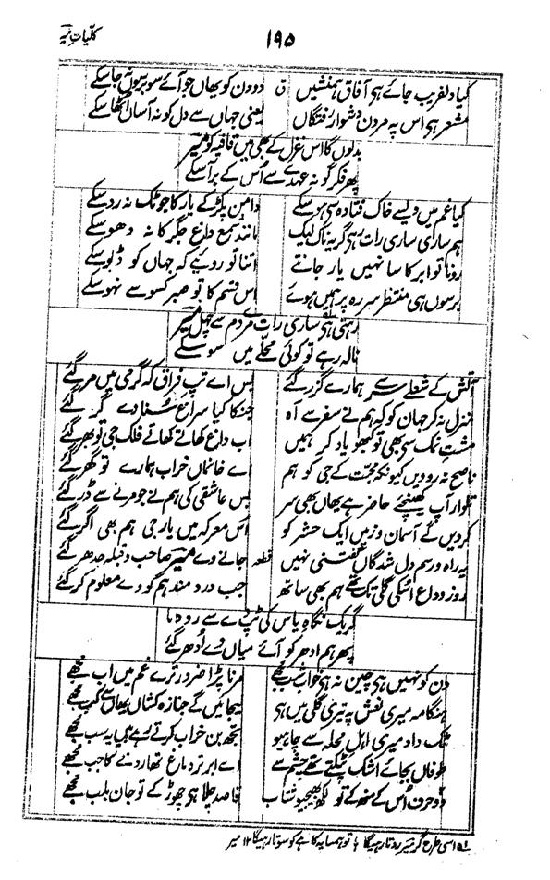 ۱۹۵
کلیات میر
کیا دلفریب جائے ہے آفاق ہمنشیں ق دو دن کو یھاں جو آئے سو برسوں نجاسکے
مشعر ہے اس پہ مردن دشوار رفتگاں یعنی جہاں سے دل کو نہ آساں اٹھا سکے
بدلوں گا اس غزل کے بھی میں قافیہ کو میر
پھر فکر گو نہ عہدے سے اُس کے برآسکے
کیا غم میں ویسے خاک فتادہ سے ہو سکے دامن پکڑ کے یار کا جو ٹک نہ رو سکے
ہم ساری ساری رات رہے گریہ ناک لیک مانند شمع داغ جگر کا نہ دھو سکے
رونا تو ابر کا سا نہیں یار جانتے اتنا تو رویئے کہ جہاں کو ڈبو سکے
برسوں ہی منتظر سر رہ پر ہمیں ہوئے اس قسم کا تو صبر کسو سے نہو سکے
رہتی ہے ساری رات مرے دم سے چہل میر
نالہ رہے تو کوئی محلے میں سو سکے
آتش کے شعلے سر سے ہمارے گزر گئے بس اے تپ فراق کہ گرمی میں مر گئے
منزل نہ کر جہان کو کہ ہم نے سفر سے آہ جنکا کیا سراغ سُنا وے گزر گئے
مشت نمک سے بھی تو کبھو یاد کر ہمیں اب داغ کھاتے کھاتے فلک جی تو بھر گئے
ناصح نہ رو دیں کیونکہ محبت کے جی کو ہم اے خانماں خراب ہمارے تو گھر گئے
تلوار آپ کھینچئے حاضر ہے یھاں بھی سر بس عاشقی کی ہم نے جو مرنے سے ڈر گئے
کر دیں گے آسمان و زمیں ایک حشر کو اس معرکہ میں یار جی ہم بھی اگر گئے
یہ راہ و رسم دل شدگاں گفتنی نہیں قطعہ جانے دے میر صاحب و قبلہ جدھر گئے
روز وداع اسکی گلی تک تھے ہم بھی ساتھ جب درد مند ہم کو دے معلوم کر گئے
کر یک نگاہ یاس کی ٹپ دے سے رو دیا
پھر ہم ادھر کو آئے میاں وے اُدھر گئے
دن کو نہیں ہے چین نہ ہے خواب شب مجھے مرنا پڑا ضرور ترے غم میں اب مجھے
ہنگامہ میری نعش پہ تیری گلی میں ہے لیجائیں گے جنازہ کشاں یھاں سے کب مجھے
ٹک داد میری اہل محلہ سے چاہیو تجھ بن خراب کرتے رہے ہیں یہ سب مجھے
طوفاں بجائے اشک ٹپکتے تھے چشم سے اے ابر تر دماغ تھا رونے کا جب مجھے
دو حرف اُس کے منھ کے تو لکھ بھیجیو شتاب قاصد چلا ہے چھوڑ کے تو جان بلب مجھے
اسی طرح گر میر روتا رہیگا تو ہمسایہ کاہے کو سوتا رہیگا ۱۲ میر